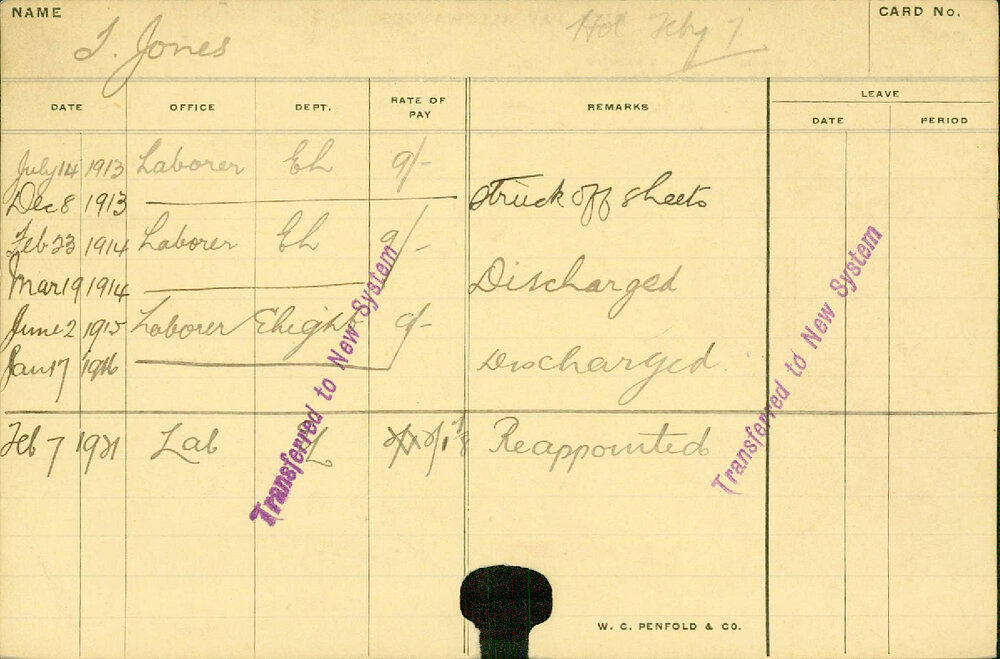 NAME
CARD No.
T. Jones
Hol Feby 7
DATE OFFICE DEPT. RATE OF PAY REMARKS LEAVE
DATE PERIOD
July 14 1913 Laborer Eh 9/-
Dec 8 1913 Struck off sheets
Feb 23 1914 Laborer Eh 9/-
Mar 19 1914 Discharged
June 2 1915 Laborer 9/-
Jan 17 1916 Discharged
Feb 7 1921 Lab Reappointed
Transferred to New System
Transferred to New System
W. C. PENFOLD & CO.